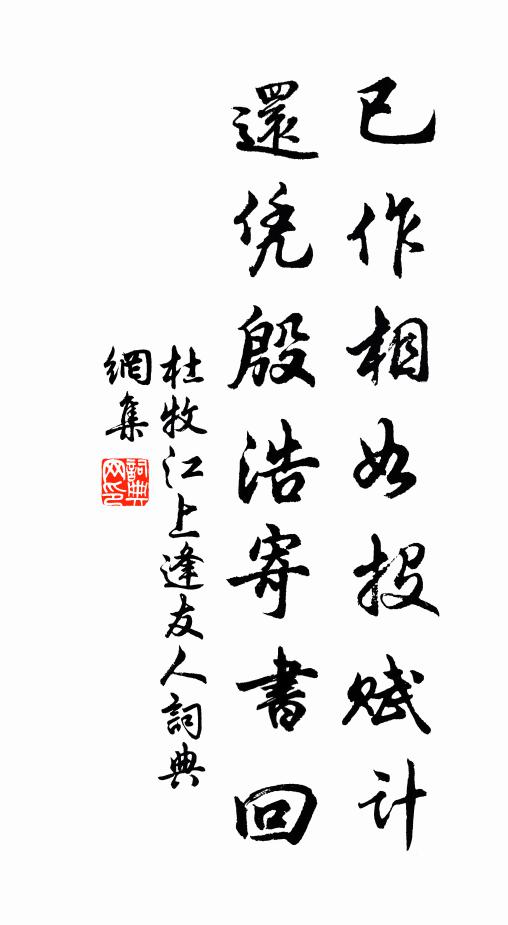 已作相如投赋计
還凭殷浩寄書回
杜牧江上逢友人詞典
網集
詞典
网印